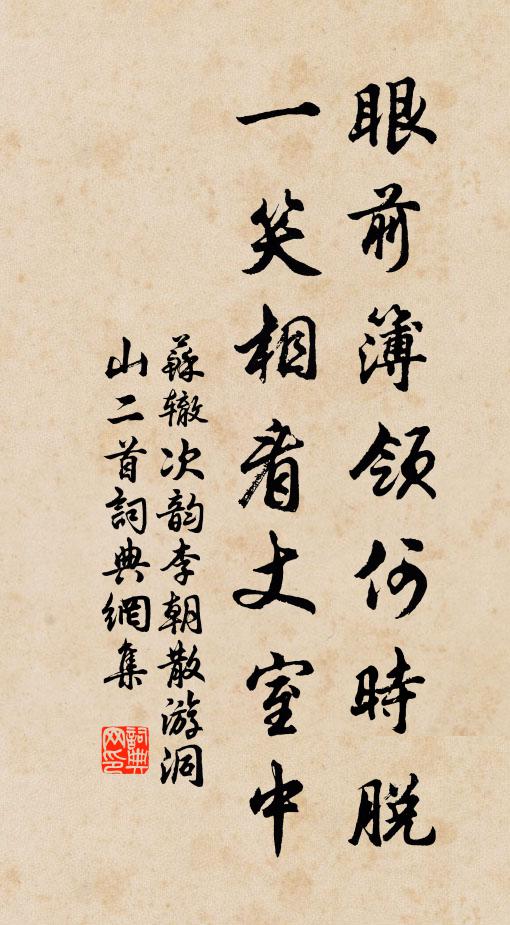 眼前簿领何時脱
一笑相看丈室中
蘇辙次韵李朝散游洞
山二首詞典網集
詞典
网印